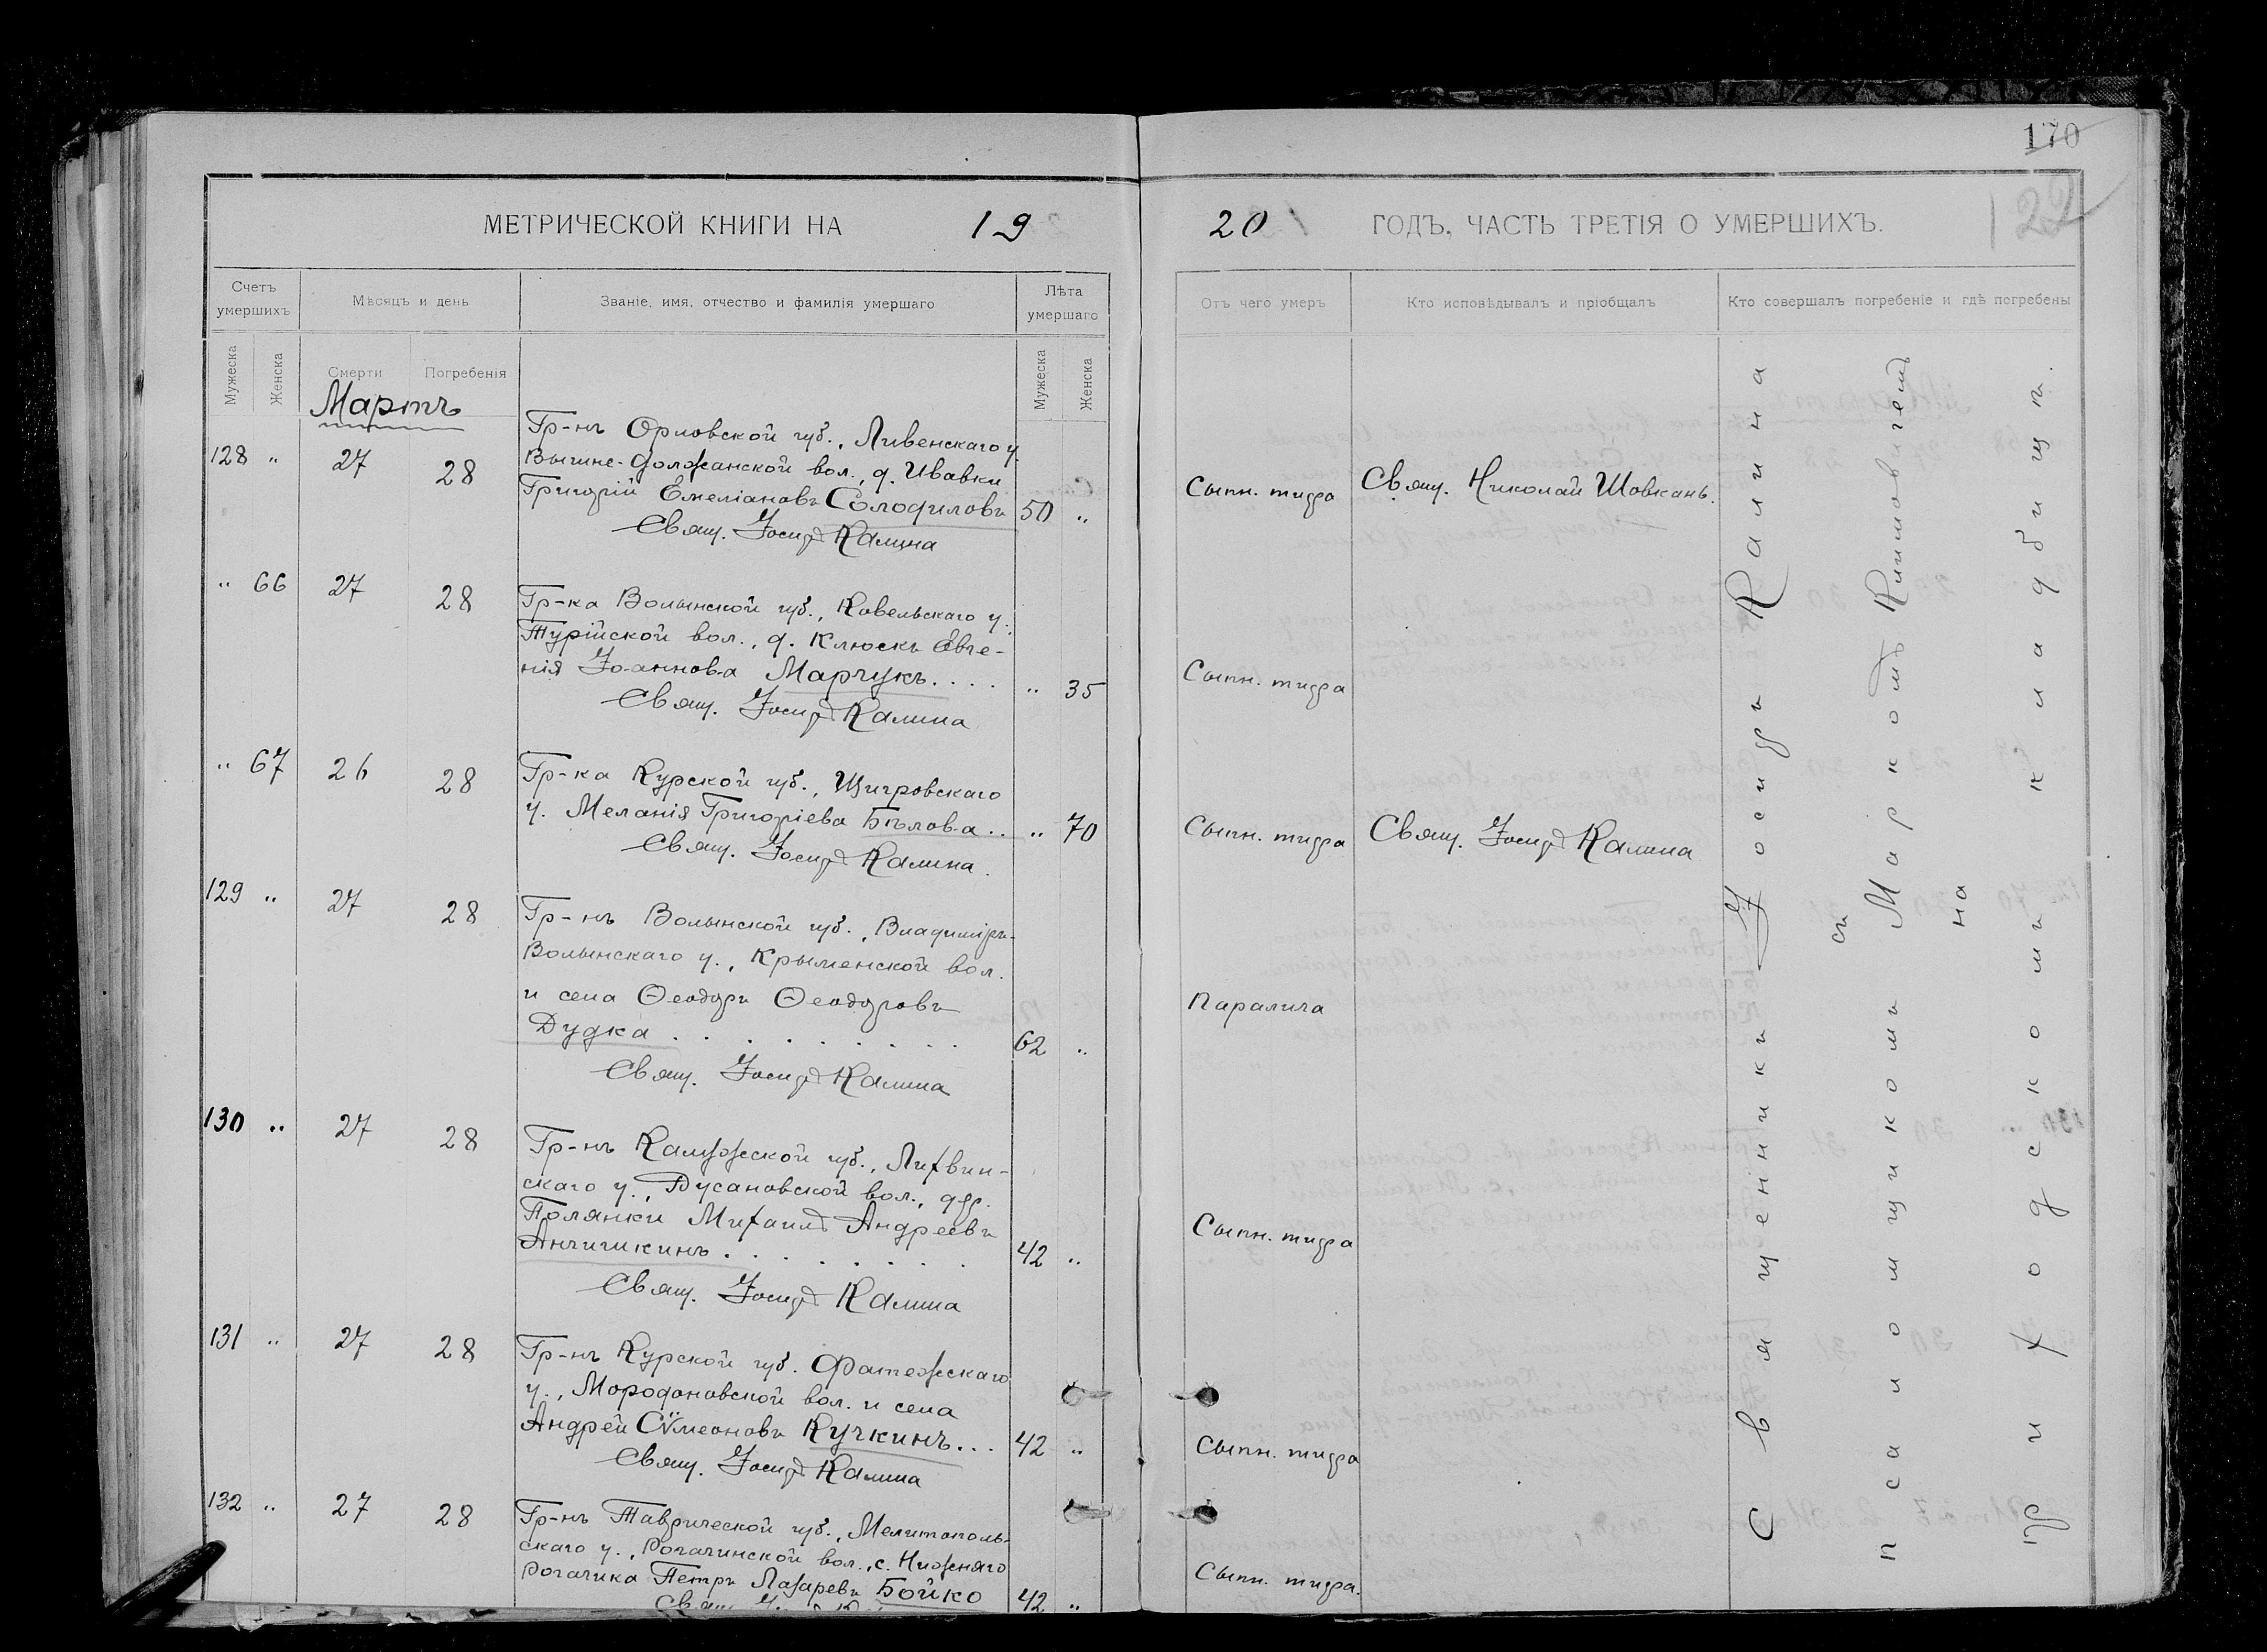 170
122
МЕТРИЧЕСКОЙ КНИГИ НА 19
20 ГОДЪ, ЧАСТЬ ТРЕТІЯ О УМЕРШИХЪ.
Счетъ умершихъ
Мѣсяцъ и день
Званіе, имя, отчество и фамилія умершаго
Лѣта умершаго
Отъ чего умеръ
Кто исповѣдывалъ и пріобщалъ
Кто совершалъ погребеніе и гдѣ погребены
Мужеска
Женска
Смерти
Погребенія
Мужеска
Женска
Мартъ
128 " 27 28
Гр-нъ Орловской губ., Ливенскаго у.
Вышне-Должанской вол., д. Ивавки
Григорій Емеліановъ Солодиловъ 50 "
Свящ. Іосифъ Калина
Сыпн. тифа
Свящ. Николай Шовкань.
" 66 27 28
Гр-ка Волынской губ., Ковельскаго у.,
Турійской вол., д. Клюскъ Евге-
нія Іоаннова Марчукъ.... " 35
Свящ. Іосифъ Калина
Сыпн. тифа
" 67 26 28
Гр-ка Курской губ., Щигровскаго
у. Меланія Григоріева Бѣлова.. " 70
Свящ. Іосифъ Калина.
Сыпн. тифа
Свящ. Іосифъ Калина
129 " 27 28
Гр-нъ Волынской губ., Владиміръ-
Волынскаго у., Крыменской вол.
и села Ѳеодоръ Ѳеодоровъ
Дудка . . . . . . . . . 62 "
Свящ. Іосифъ Калина
Паралича
130 " 27 28
Гр-нъ Калужской губ., Лихвин-
скаго у., Дусановской вол., дер.
Полянки Михаилъ Андреевъ
Анчишкинъ . . . . . . . 42 "
Свящ. Іосифъ Калина
Сыпн. тифа
131 " 27 28
Гр-нъ Курской губ. Фатежскаго
у., Мородоновской вол. и села
Андрей Сѵмеоновъ Кучкинъ... 42 "
Свящ. Іосифъ Калина
Сыпн. тифа
132 " 27 28
Гр-нъ Таврической губ., Мелитополь-
скаго у., Рогачинской вол., с. Нижняго
Рогачика Петръ Лазаревъ Бойко 42 "
Сыпн. тифа.
Священникъ Іосифъ Калина
съ
псаломщикомъ Маркомъ Китовигемъ
на
приходскомъ кладбищѣ.